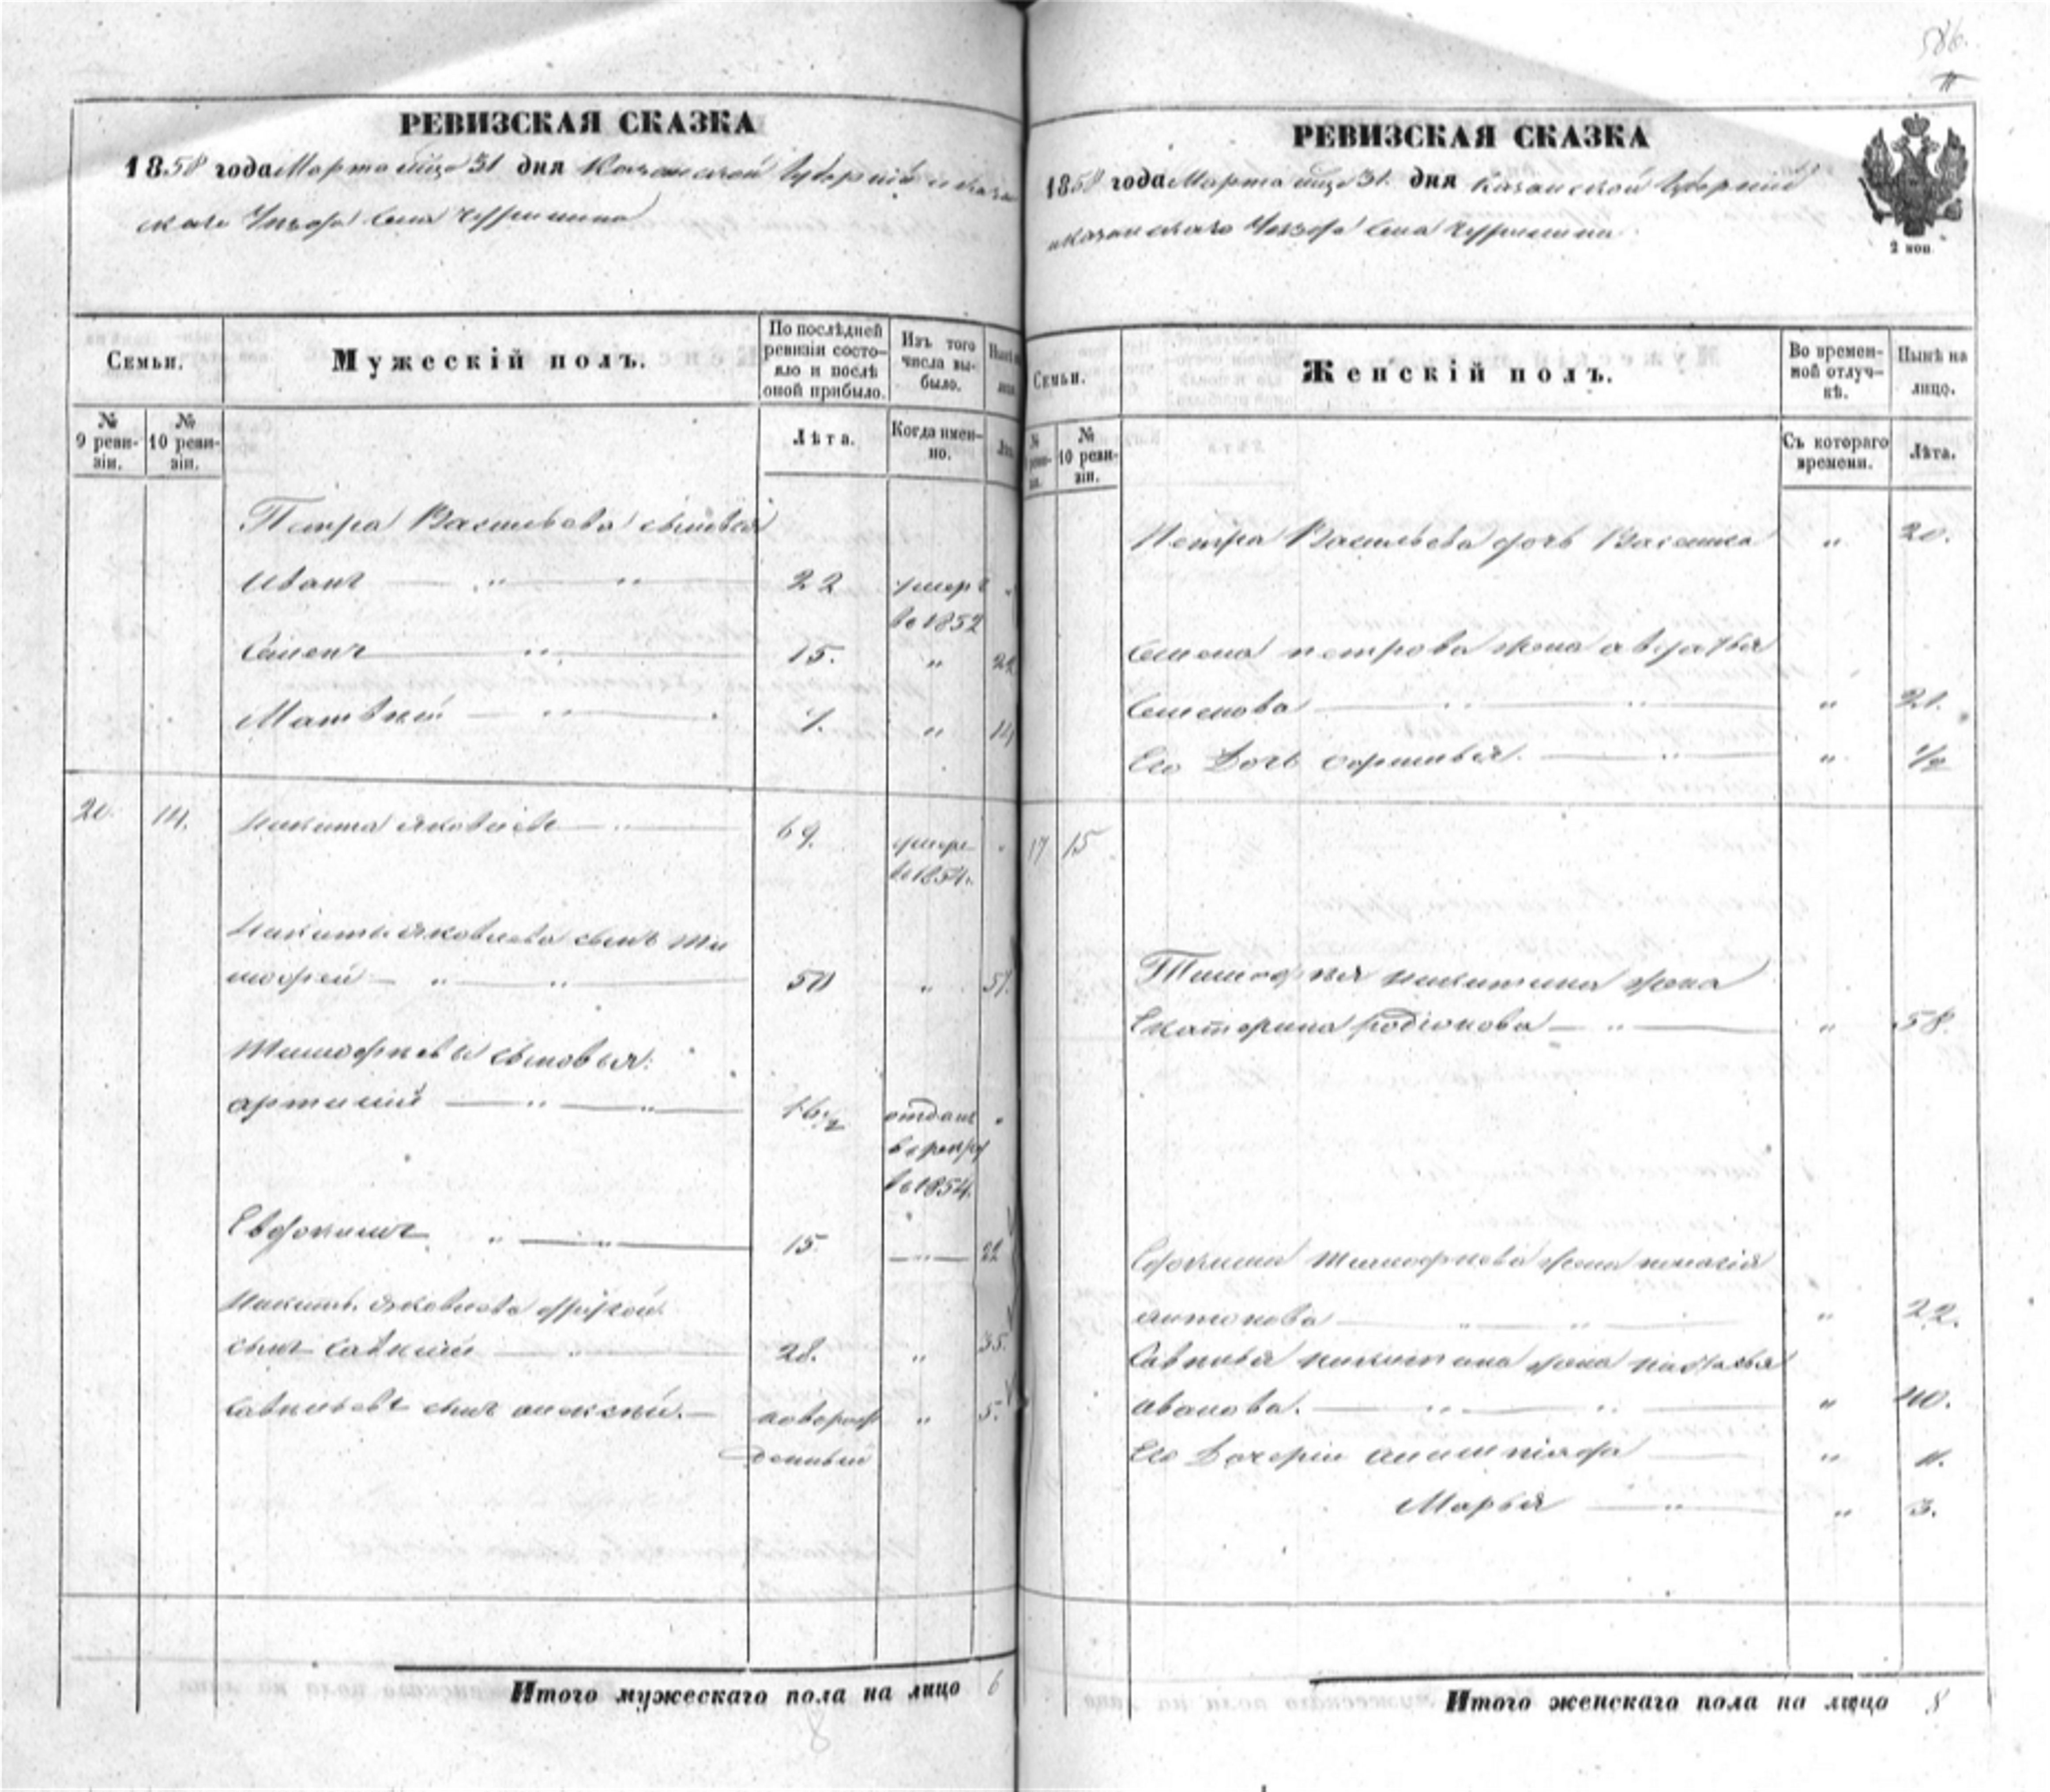 586.
РЕВИЗСКАЯ СКАЗКА
1858 года Марта мца 31 дня Казанской Губернии и Казан
скаго Уезда Села
Семьи.
Мужескій полъ.
По послѣдней ревизіи состояло и послѣ оной прибыло.
Изъ того числа выбыло.
№ 9 ревизіи.
№ 10 ревизіи.
Лѣта.
Когда именно.
Петра Васильева сыновья
Иванъ 22 умеръ
в 1852
Семенъ 15. " 22
Матвей 7. " 14
20. 14. Никита Яковлевъ 69. умеръ
в 1854.
Никиты Яковлева сынъ Ти
мофей 50 " 57.
Тимофеевы сыновья:
Артемий 16 1/2 отданъ
в рекру
в 1854.
Евдокимъ 15 " 22
Никиты Яковлева другой
сынъ Савелий 28. " 35.
Савельевъ сынъ Алексей. новорож " 5.
денный
Итого мужескаго пола на лицо 6
8
РЕВИЗСКАЯ СКАЗКА
1858 года Марта мца 31. дня Казанской Губернии
и Казанскаго Уезда Села
2 коп
Семьи.
Женскій полъ.
Во временной отлучкѣ.
Нынѣ на лицо.
№ 10 ревизіи.
Съ котораго времени.
Лѣта.
Петра Васильева дочь " 20.
Семена Петрова жена Авдотья
Семенова " 21.
Его Дочь " 1/2
17 15
Тимофея Никитина жена
Екатерина Родионова " 58.
Евдокима Тимофеева жена Пелагия
Антонова " 22.
Савелья Никитина жена Наталья
Иванова. " 40.
Его Дочери " 11.
Марья " 3.
Итого женскаго пола на лицо 8